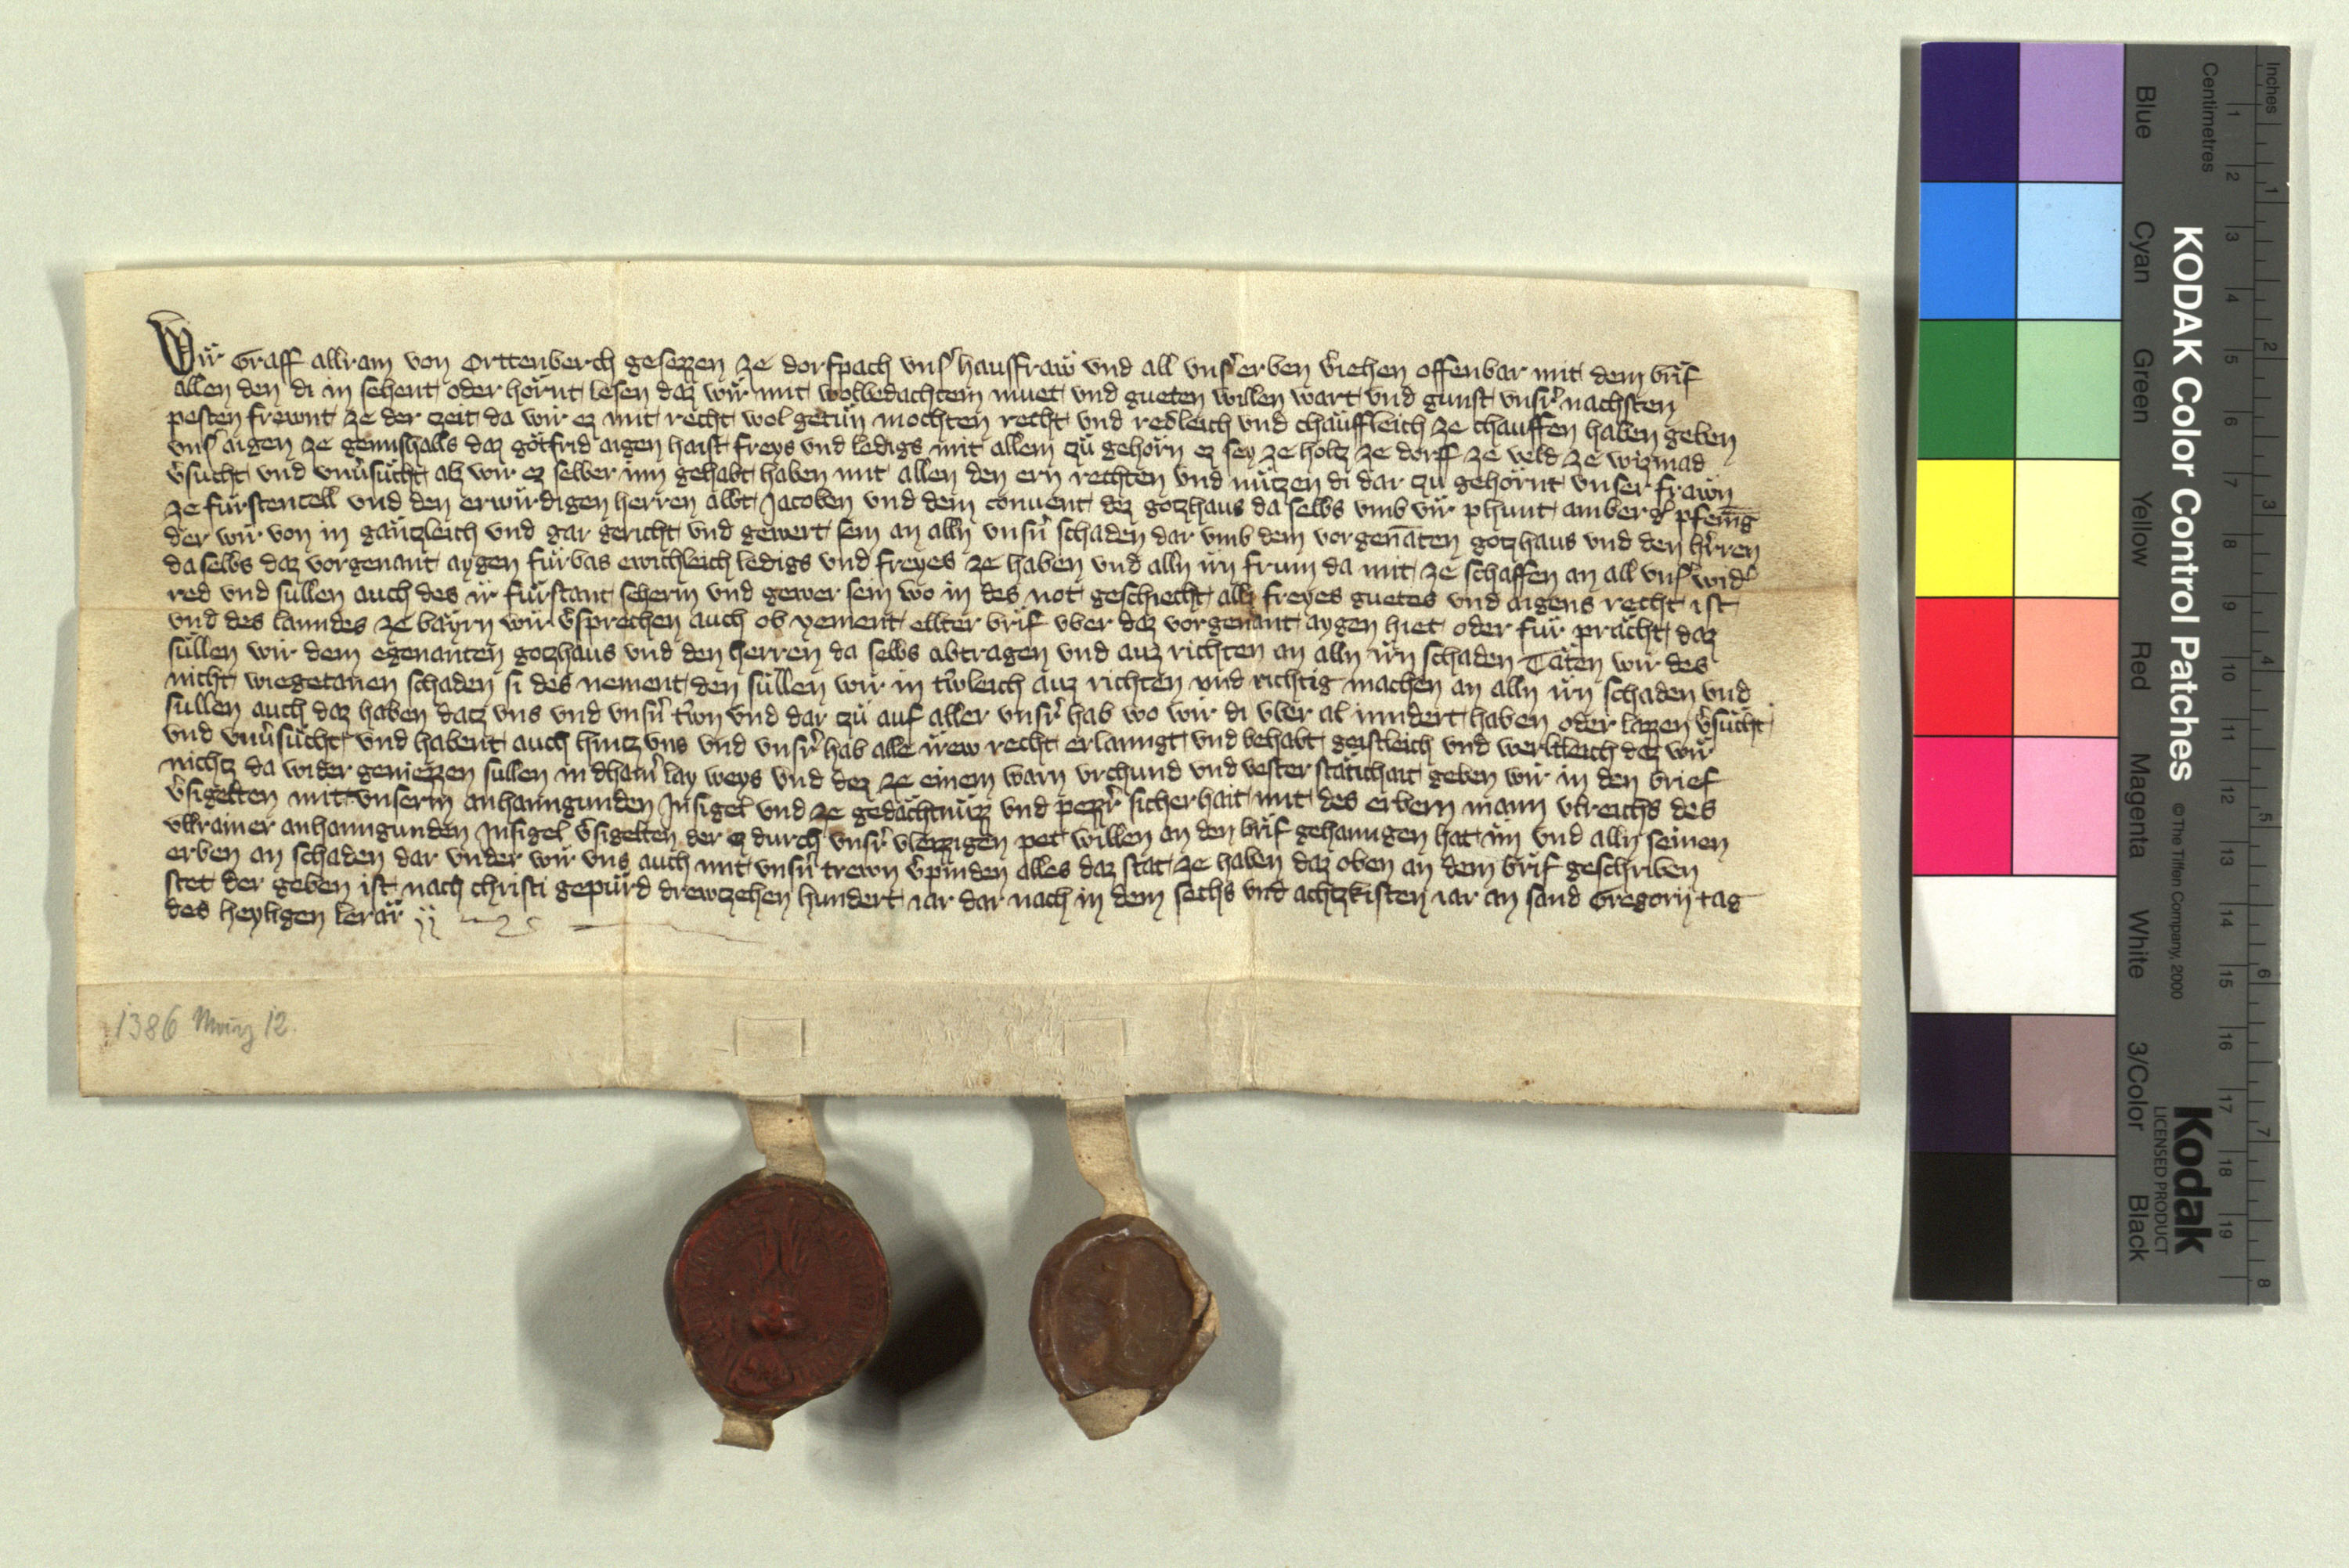 Wir Graff allram von Orttenberch gesezzen ze dorfpach vnsˀ hausfraw vnd all vnsˀ erben v̉iehen offenbar mit dem brif
allen den di in sehent oder hörnt lesen daz wir mit wolbedachtem muet vnd gueten willen wart vnd gunst vnsr̉ nachsten
pesten frewnt ze der czeit da wir ez mit recht wol getün mochten recht vnd redleich vnd chäuffleich ze chauffen haben geben
vnsˀ aigen ze gemishalls daz götfrid aigen haist freys vnd ledigs mit allem zü gehörn ez sey ze holtz ze dorff ze veld ze wizmad
v̉sucht vnd vnv̉sücht alz wir ez selber inn gehabt haben mit allen den ern rechten vnd nützen di dar zü gehörnt vnser frawn
ze fürstencell vnd den erwirdigen herren abbt Jacoben vnd dem conuent dez gotzhaus da selbs vmb vir phunt ambergˀ pfenīg
der wir von in gäntzleich vnd gar gericht vnd gewert sein an alln vnsn̉ schaden dar vmb dem vorgenāten gotzhaus vnd den hr̉ren
da selbs daz vorgenant aygen fürbas ewichleich ledigs vnd freyes ze haben vnd alln irn frum da mit ze schaffen an all vnsˀ widˀ
red vnd sullen auch des ir fürstant scherm vnd gewer sein wo in des not geschiecht allz freyes guetes vnd aigens recht ist
vnd des lanndes ze bäyrn wir v̉sprechen auch ob yement ellter brif vber daz vorgenant aygen hiet oder für prächt daz
süllen wir dem egenanten gotzhaus vnd den herren da selbs abtragen vnd auz richten an alln irn schaden Täten wir des
nicht wiegetanen schaden si des nement den süllen wir in trẘleich auz richten vnd richtig machen an alln irn schaden vnd
süllen auch daz haben datz vns vnd vnsn̉ trẘn vnd dar zü auf aller vnsr̉ hab wo wir di vber al inndert haben oder lazzen v̉sücht
vnd vnv̉sücht vnd habent auch hintz vns vnd vnsr̉ hab alle irew recht erlanngt vnd behabt geistleich vnd werltleich dez wir
nichtz da wider geniezzen sullen in dhainˀ lay weys vnd dez ze einem warn vrchund vnd vester stätichait geben wir in den brief
v̉sigelten mit vnserm anhanngunden Insigel vnd ze gedächtnüzz vnd pezzr̉ sicherhait mit des erbern mann vlreichs des
vllrainer anhanngunden Insigel v̉sigelten der ez durch vnsr̉ vleizzigen pet willen an den brif gehanngen hat im vnd alln seinen
erben an schaden dar vnder wir vns auch mit vnsn̉ trewn v̉pinden alles daz stät ze haben daz oben an dem brif geschriben
stet der geben ist nach christi gepürd drewtzehen hundert iar dar nach in dem sechs vnd achtzkisten iar an sand Gregorij tag
des heyligen lerär
1386 März 12.
Inches
Centimetres
KODAK Color Control Patches
© The Tiffen Company, 2000
Kodak
LICENSED PRODUCT
Blue
Cyan
Green
Yellow
Red
Magenta
White
3/Color
Black
1 2 3 4 5 6 7 8 9 10 11 12 13 14 15 16 17 18 19
1 2 3 4 5 6 7 8